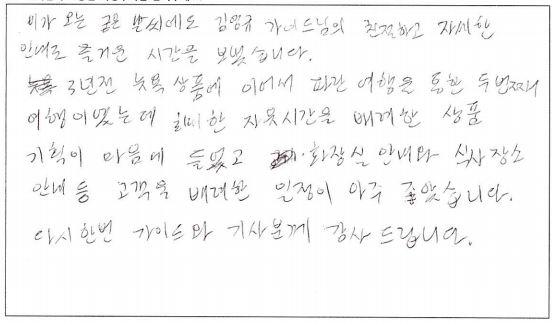 비가 오는 궂은 날씨에도 김영규 가이드님의 친절하고 자세한
안내로 즐거운 시간을 보냈습니다.
3년전 뉴욕 상품에 이어서 파란 여행을 통한 두번째
여행이었는데 적절한 자유시간을 배려한 상품
기획이 마음에 들었고 화장실 안내와 식사장소
안내 등 고객을 배려한 일정이 아주 좋았습니다.
다시한번 가이드와 기사분께 감사 드립니다.